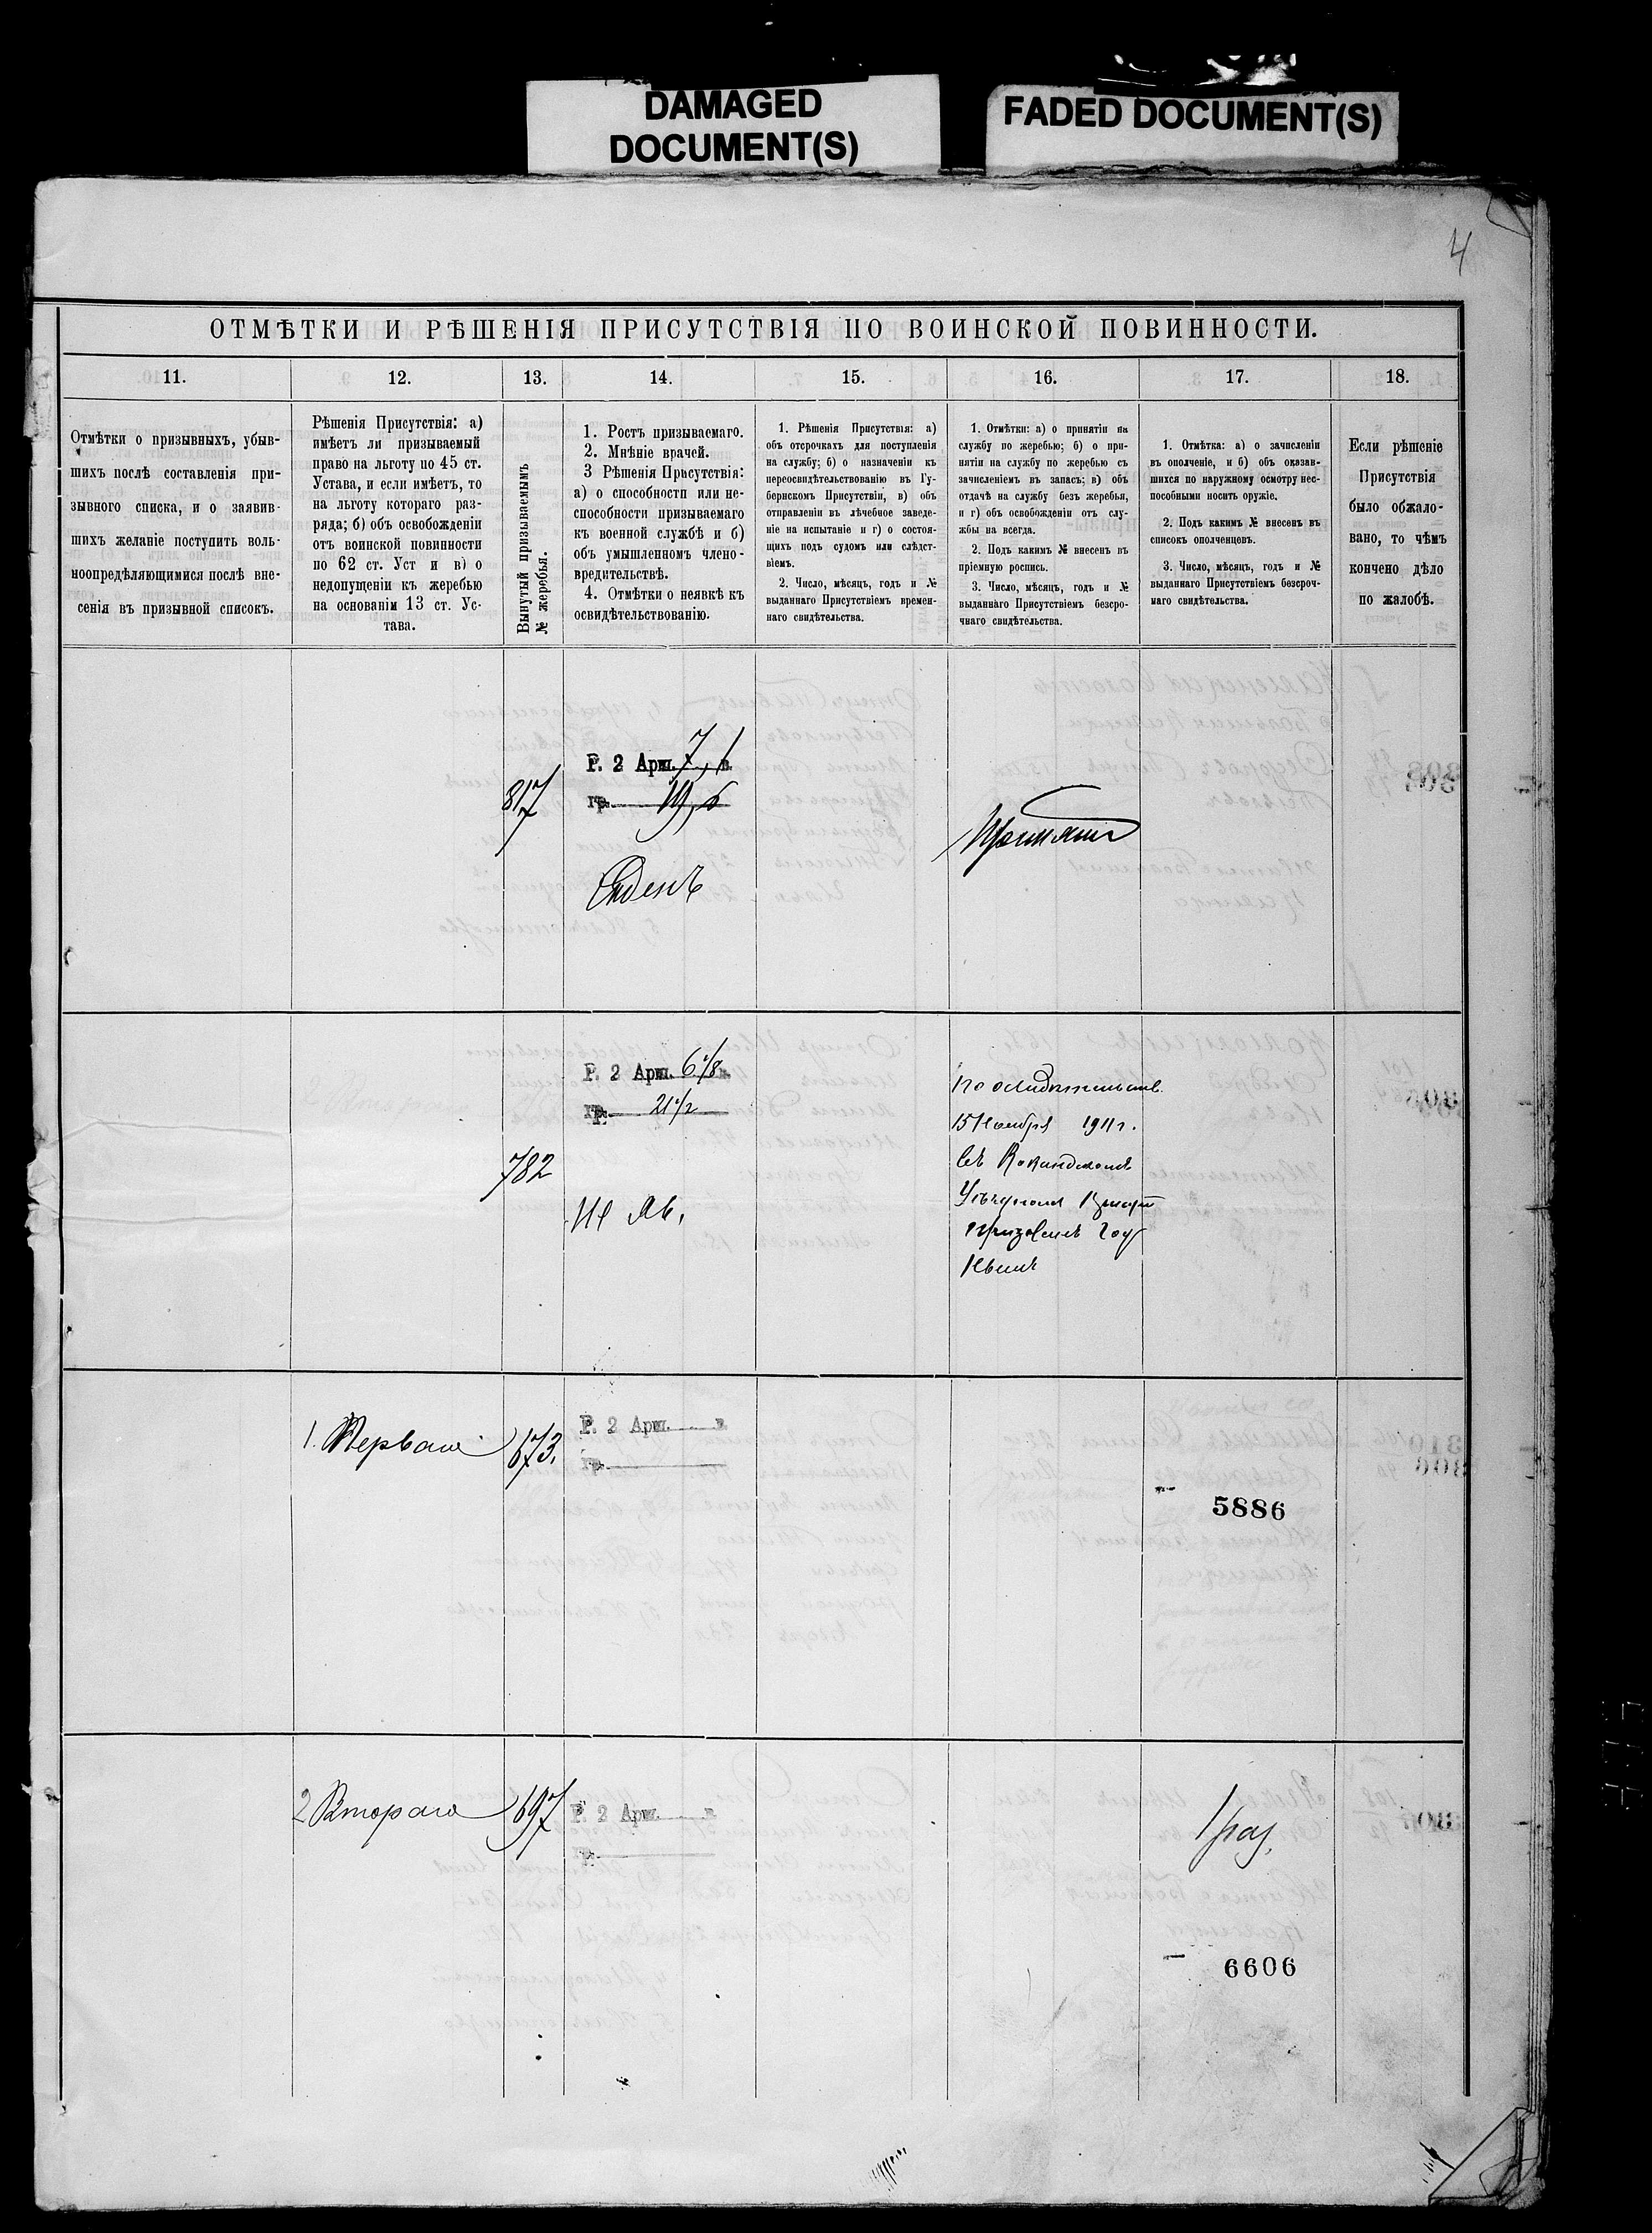 DAMAGED
DOCUMENT(S)
FADED DOCUMENT(S)
4
ОТМѢТКИ И РѢШЕНІЯ ПРИСУТСТВІЯ ПО ВОИНСКОЙ ПОВИННОСТИ.
11.
12.
13.
14.
15.
16.
17.
18.
Отмѣтки о призывныхъ, убыв-
шихъ послѣ составленія при-
зывного списка, и о заявив-
шихъ желаніе поступить воль-
ноопредѣляющимися послѣ вне-
сенія въ призывной списокъ.
Рѣшенія Присутствія: а)
имѣетъ ли призываемый
право на льготу по 45 ст.
Устава, и если имѣетъ, то
на льготу котораго раз-
ряда; б) объ освобожденіи
отъ воинской повинности
по 62 ст. Уст и в) о
недопущеніи къ жеребью
на основаніи 13 ст. Ус-
тава.
Вынутый призываемымъ
№ жеребья.
1. Ростъ призываемаго.
2. Мнѣніе врачей.
3 Рѣшенія Присутствія:
а) о способности или не-
способности призываемаго
къ военной службѣ и б)
объ умышленномъ члено-
вредительствѣ.
4. Отмѣтки о неявкѣ къ
освидѣтельствованію.
1. Рѣшенія Присутствія: а)
объ отсрочкахъ для поступленія
на службу; б) о назначеніи къ
переосвидѣтельствованію въ Гу-
бернскомъ Присутствіи, в) объ
отправленіи въ лѣчебное заведе-
ніе на испытаніе и г) о состоя-
щихъ подъ судомъ или слѣдст-
віемъ.
2. Число, мѣсяцъ, годъ и №
выданнаго Присутствіемъ времен-
наго свидѣтельства.
1. Отмѣтки: а) о принятіи на
службу по жеребью; б) о при-
нятіи на службу по жеребью съ
зачисленіемъ въ запасъ; в) объ
отдачѣ на службу безъ жеребья,
и г) объ освобожденіи отъ слу-
жбы на всегда.
2. Подъ какимъ № внесенъ въ
пріемную роспись.
3. Число, мѣсяцъ, годъ и №
выданнаго Присутствіемъ безсро-
чнаго свидѣтельства.
1. Отмѣтка: а) о зачисленіи
въ ополченіе, и б) объ оказав-
шихся по наружному осмотру нес-
пособными носить оружіе.
2. Подъ какимъ № внесенъ въ
списокъ ополченцовъ.
3. Число, мѣсяцъ, годъ и №
выданнаго Присутствіемъ безсроч-
наго свидѣтельства.
Если рѣшеніе
Присутствія
было обжало-
вано, то чѣмъ
кончено дѣло
по жалобѣ.
817
Р. 2 Арш. 7,1 в.
гр. 19,5
Годенъ
Принятъ
782
Р. 2 Арш. 6 1/8 в.
гр. 21 1/2
Не яв.
По освидѣтельств.
15 Ноября 1911 г.
въ Кокандскомъ
Уѣздномъ
признанъ год
нымъ
1. Перваго
673.
Р. 2 Арш. в.
гр.
5886
2 Втораго
697
Р. 2 Арш. в.
гр.
1 раз.
6606